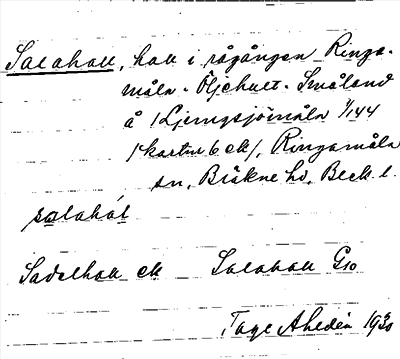 Salahall, hall i rågången Ringa-
måla - Öljehult - Småland
å /Ljungsjömåla 1/144
/kartan 6 ek/, Ringamåla
sn, Bräkne hd, Blek. l.
salahál
Sadelhall ek Salahall G10
Tage Ahldén 1930